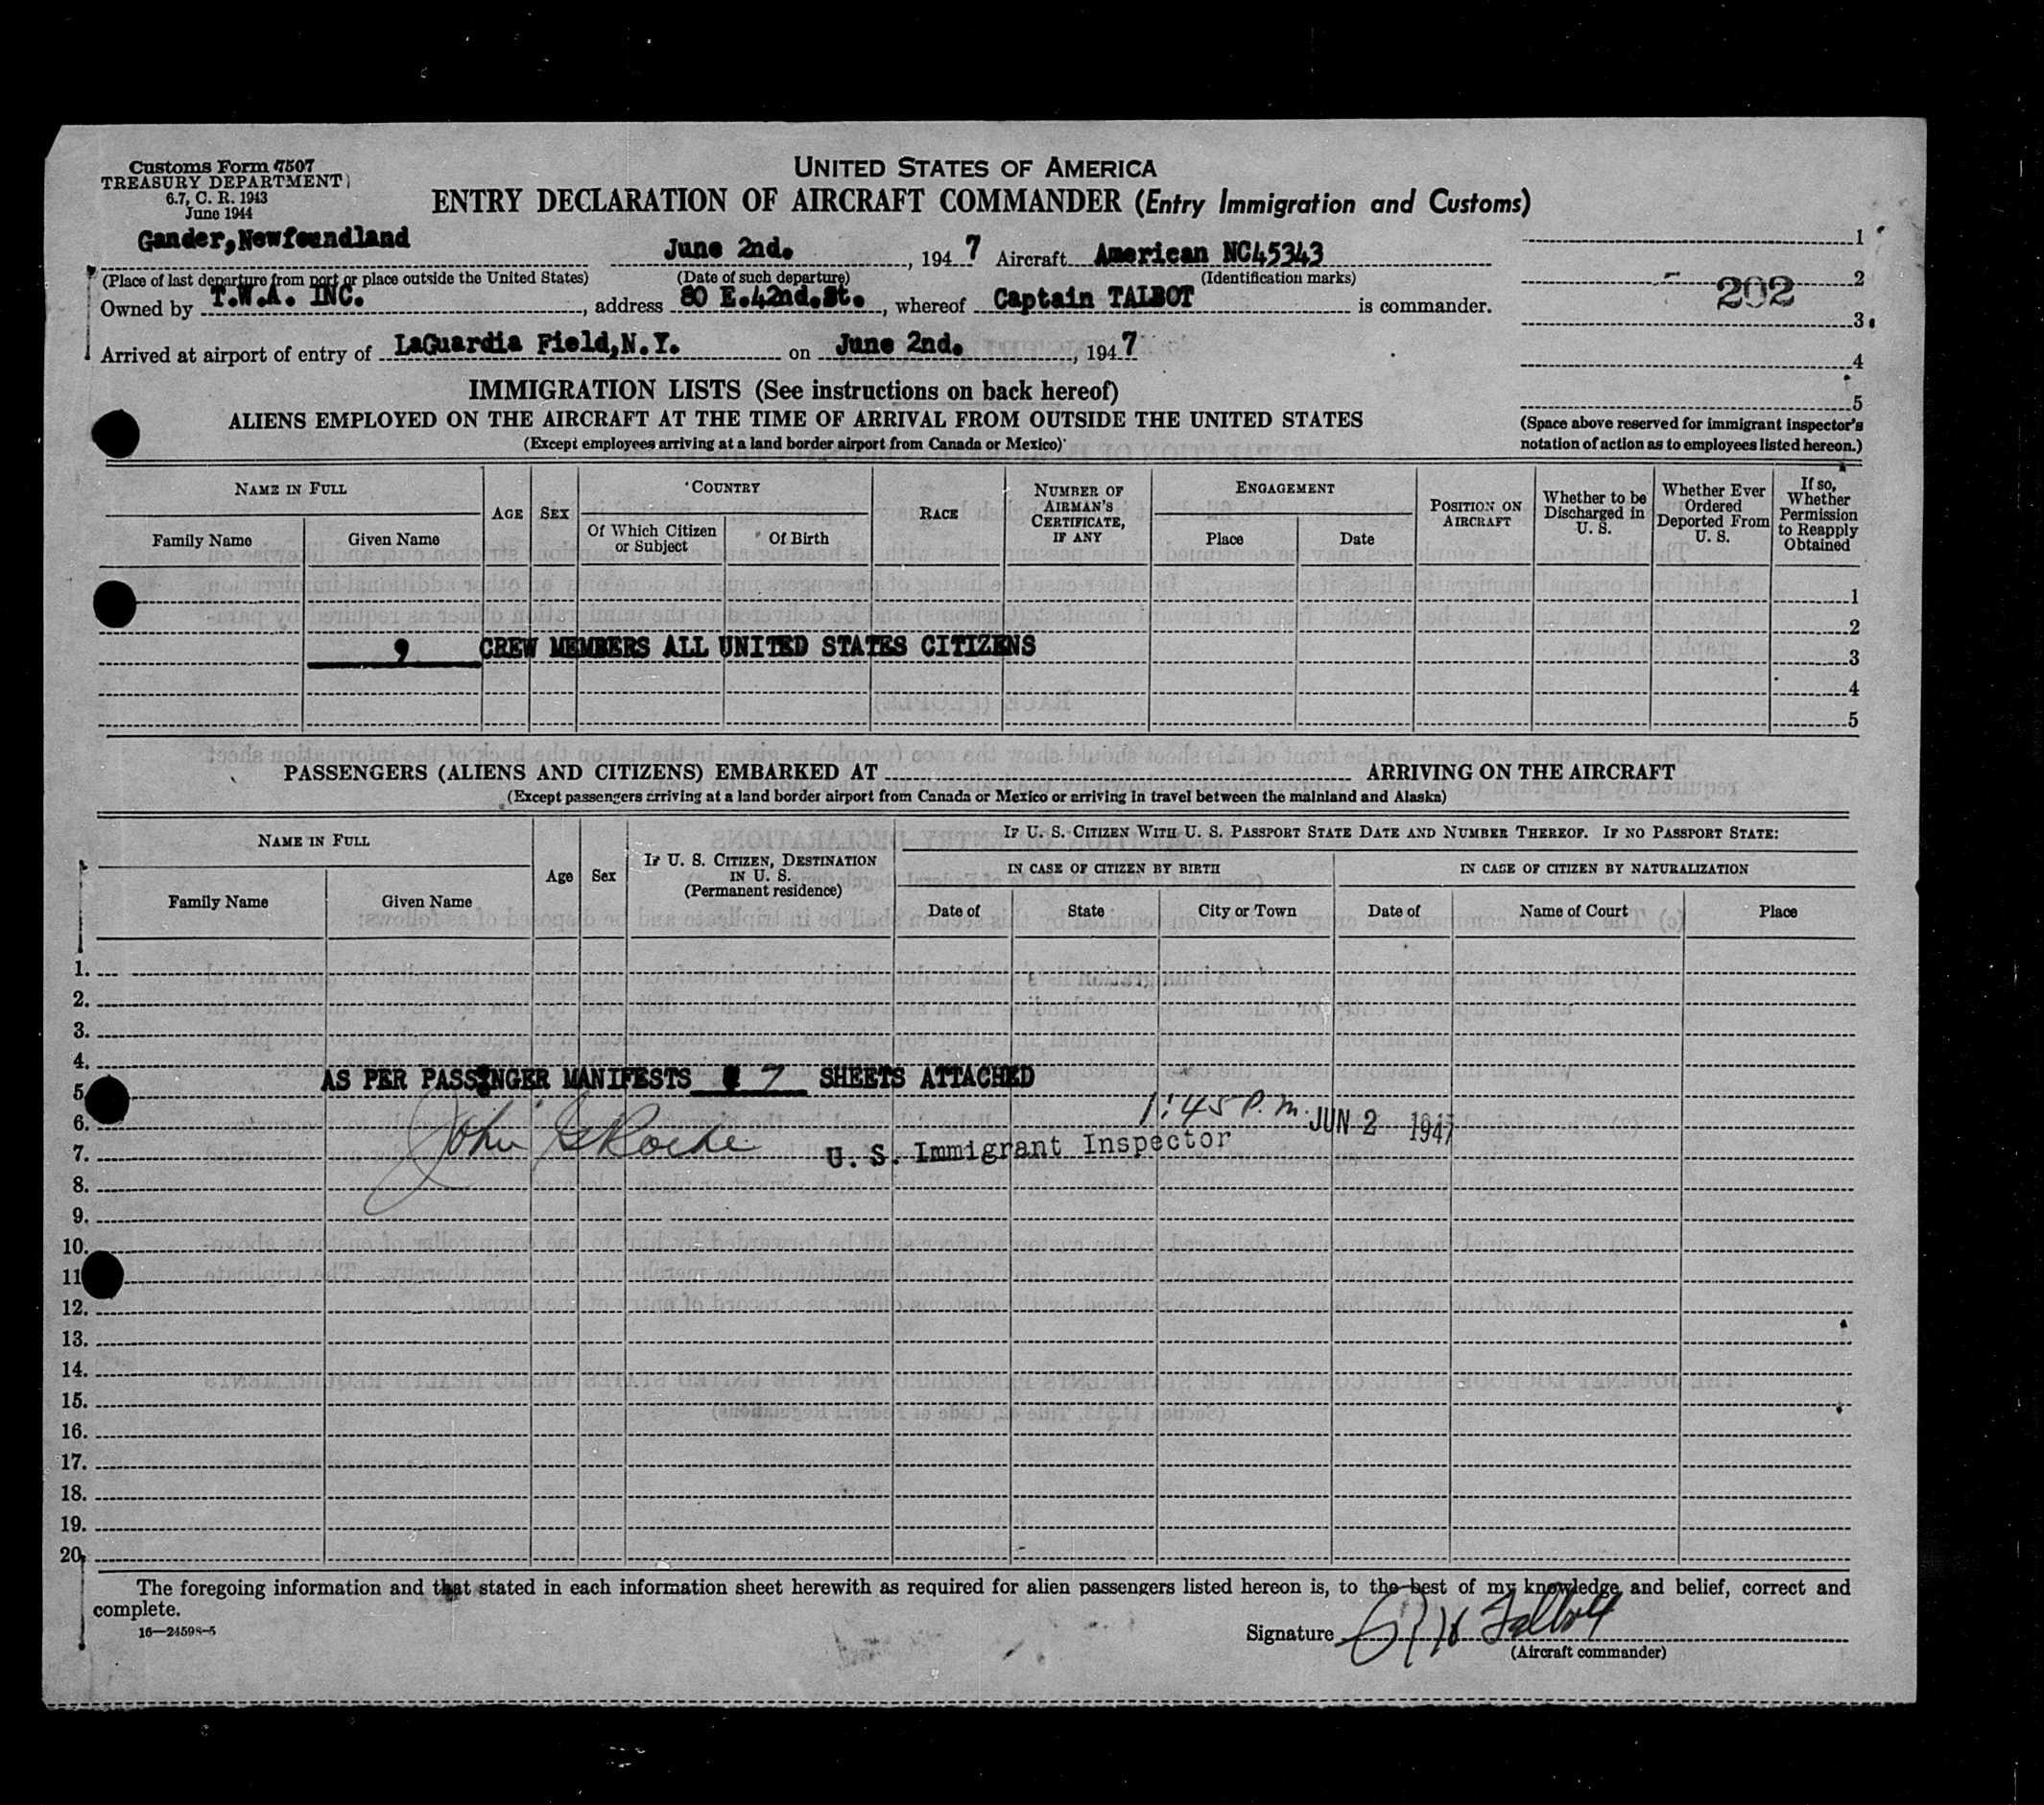 Customs Form 7507
TREASURY DEPARTMENT
6.7, C. R. 1943
June 1944
UNITED STATES OF AMERICA
ENTRY DECLARATION OF AIRCRAFT COMMANDER (Entry Immigration and Customs)
Gander,Newfoundland June 2nd. , 1947 Aircraft American NC45343
(Place of last departure from port or place outside the United States) (Date of such departure) (Identification marks)
Owned by T.W.A. INC. , address 80 E.42nd.St. , whereof Captain TALBOT is commander.
Arrived at airport of entry of LaGuardia Field,N.Y. on June 2nd. , 1947
1
2
202
3
4
5
(Space above reserved for immigrant inspector's
notation of action as to employees listed hereon.)
IMMIGRATION LISTS (See instructions on back hereof)
ALIENS EMPLOYED ON THE AIRCRAFT AT THE TIME OF ARRIVAL FROM OUTSIDE THE UNITED STATES
(Except employees arriving at a land border airport from Canada or Mexico)
NAME IN FULL
Family Name
Given Name
AGE
SEX
COUNTRY
Of Which Citizen or Subject
Of Birth
RACE
NUMBER OF AIRMAN'S CERTIFICATE, IF ANY
ENGAGEMENT
Place
Date
POSITION ON AIRCRAFT
Whether to be Discharged in U. S.
Whether Ever Ordered Deported From U. S.
If so, Whether Permission to Reapply Obtained
1
2
9 CREW MEMBERS ALL UNITED STATES CITIZENS
3
4
5
PASSENGERS (ALIENS AND CITIZENS) EMBARKED AT ARRIVING ON THE AIRCRAFT
(Except passengers arriving at a land border airport from Canada or Mexico or arriving in travel between the mainland and Alaska)
NAME IN FULL
Family Name
Given Name
Age
Sex
IF U. S. CITIZEN, DESTINATION IN U. S.
(Permanent residence)
IF U. S. CITIZEN WITH U. S. PASSPORT STATE DATE AND NUMBER THEREOF. IF NO PASSPORT STATE:
IN CASE OF CITIZEN BY BIRTH
Date of
State
City or Town
IN CASE OF CITIZEN BY NATURALIZATION
Date of
Name of Court
Place
1.
2.
3.
4.
AS PER PASSENGER MANIFESTS 7 SHEETS ATTACHED
5.
1:45 P.M. JUN 2 1947
6.
John Roche
U. S. Immigrant Inspector
7.
8.
9.
10.
11
12.
13.
14.
15.
16.
17.
18.
19.
20.
The foregoing information and that stated in each information sheet herewith as required for alien passengers listed hereon is, to the best of my knowledge and belief, correct and
complete.
16—24598-5
Signature Talbot
(Aircraft commander)